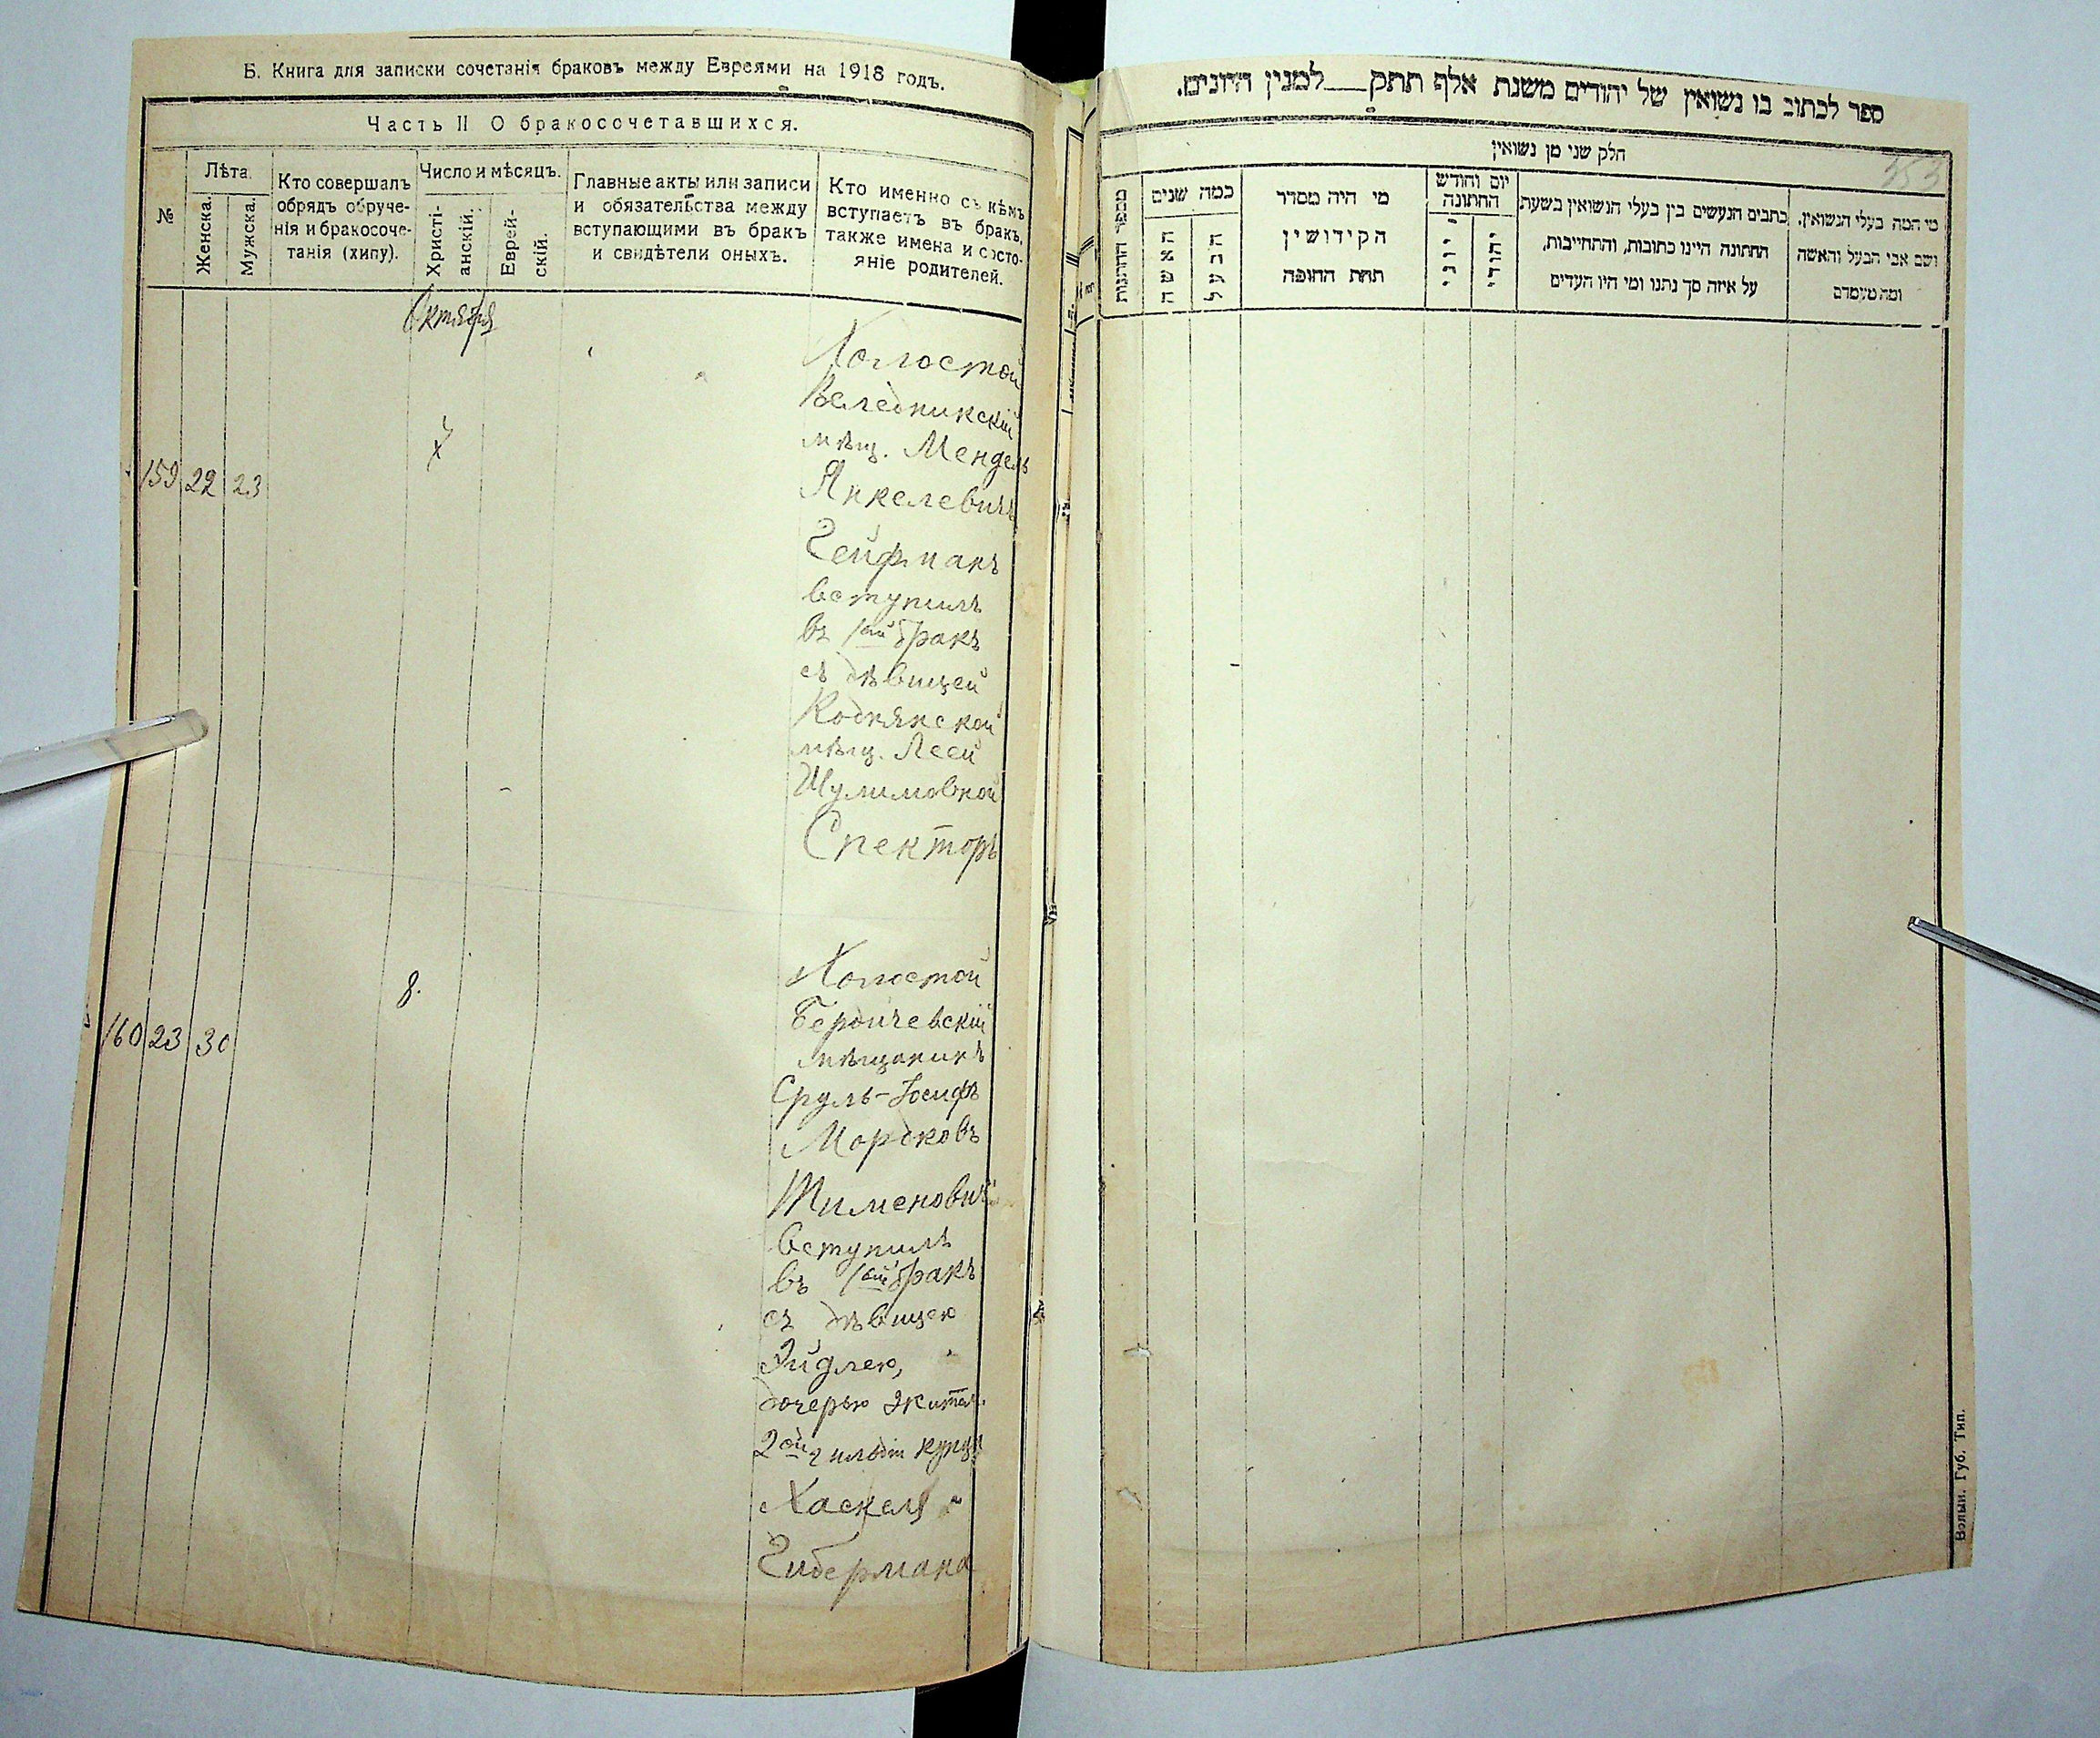 Б. Книга для записки сочетанія браковъ между Евреями на 1918 годъ.
Часть II О бракосочетавшихся.
№
Лѣта.
Женска.
Мужска.
Кто совершалъ
обрядъ обруче-
нія и бракосоче-
танія (хипу).
Число и мѣсяцъ.
Христі-
анскій.
Еврей-
скій.
Главные акты или записи
и обязательства между
вступающими въ бракъ
и свидѣтели оныхъ.
Кто именно съ кѣмъ
вступаетъ въ бракъ,
также имена и состо-
яніе родителей.
Октября
159 22 23
7
Холостой
Веледникскій
мѣщ. Мендель
Янкелевичъ
Гейфманъ
вступилъ
въ 1ый бракъ
съ дѣвицей
Коднянской
мѣщ. Леей
Шулимовной
Спекторъ
160 23 30
8.
Холостой
Бердичевскій
мѣщанинъ
Сруль-Іосифъ
Мордковъ
Тименовичъ
вступилъ
въ 1ый бракъ
съ дѣвицею
Эйдлею,
дочерью Житом.
2ой гильдіи купца
Хаскеля
Гибермана
ספר לכתוב בו נשואין של יהודים משנת אלף תתק למנין היונים.
חלק שני מן נשואין
253
מספר החתונות
כמה שנים
האשה
הבעל
מי היה מסדר
הקידושין
תחת החופה
יום וחודש
החתונה
יוני
יהודי
כתבים הנעשים בין בעלי הנשואין בשעת
החתונה היינו כתובות, והתחייבות,
על איזה סך נתנו ומי היו העדים
מי המה בעלי הנשואין,
ושם אבי הבעל והאשה
ומה מעמדם
Волын. Губ. Тип.